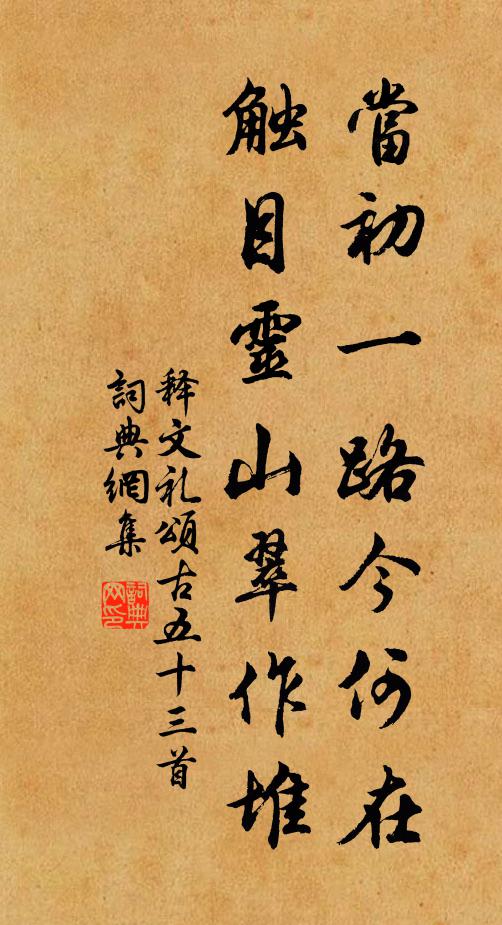 當初一路今何在
触目靈山翠作堆
释文礼頌古五十三首
詞典網集
詞典网印